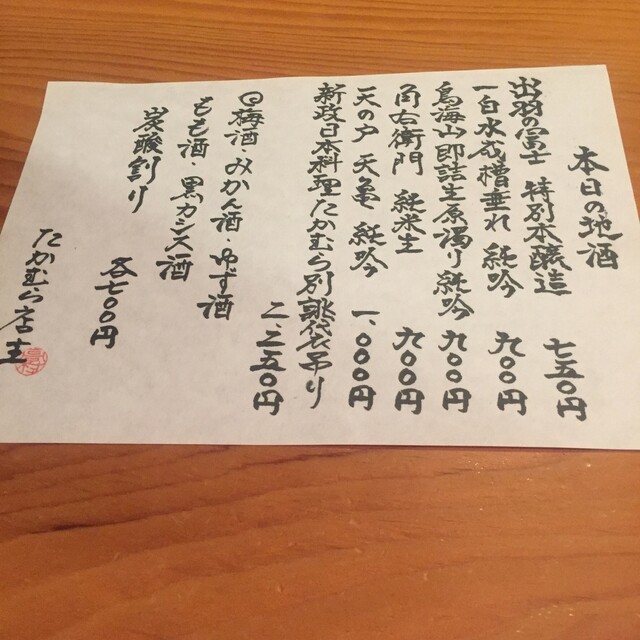 本日の地酒
出羽の冨士 特別本醸造 七五〇円
一白水成 槽垂れ 純吟 九〇〇円
鳥海山 即詰生原濁り純吟 九〇〇円
角右衛門 純米生 九〇〇円
天の戸 天亀 純吟 一、〇〇〇円
新政日本料理たかむら別誂袋吊り
二、二五〇円
梅酒・みかん酒・ゆず酒
もも酒・黒カシス酒
炭酸割り
各七〇〇円
たかむら店主